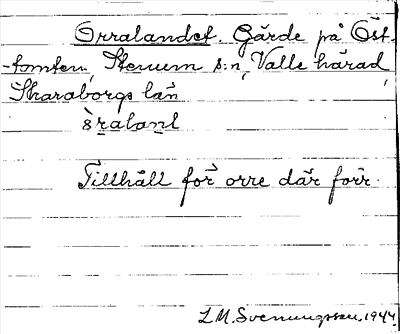 Orralandet. Gärde på Öst-
-tomten, Stenum s:n, Valle härad,
Skaraborgs län
òralanḷ
Tillhåll för orre där förr.
L M. Svenungsson, 1944